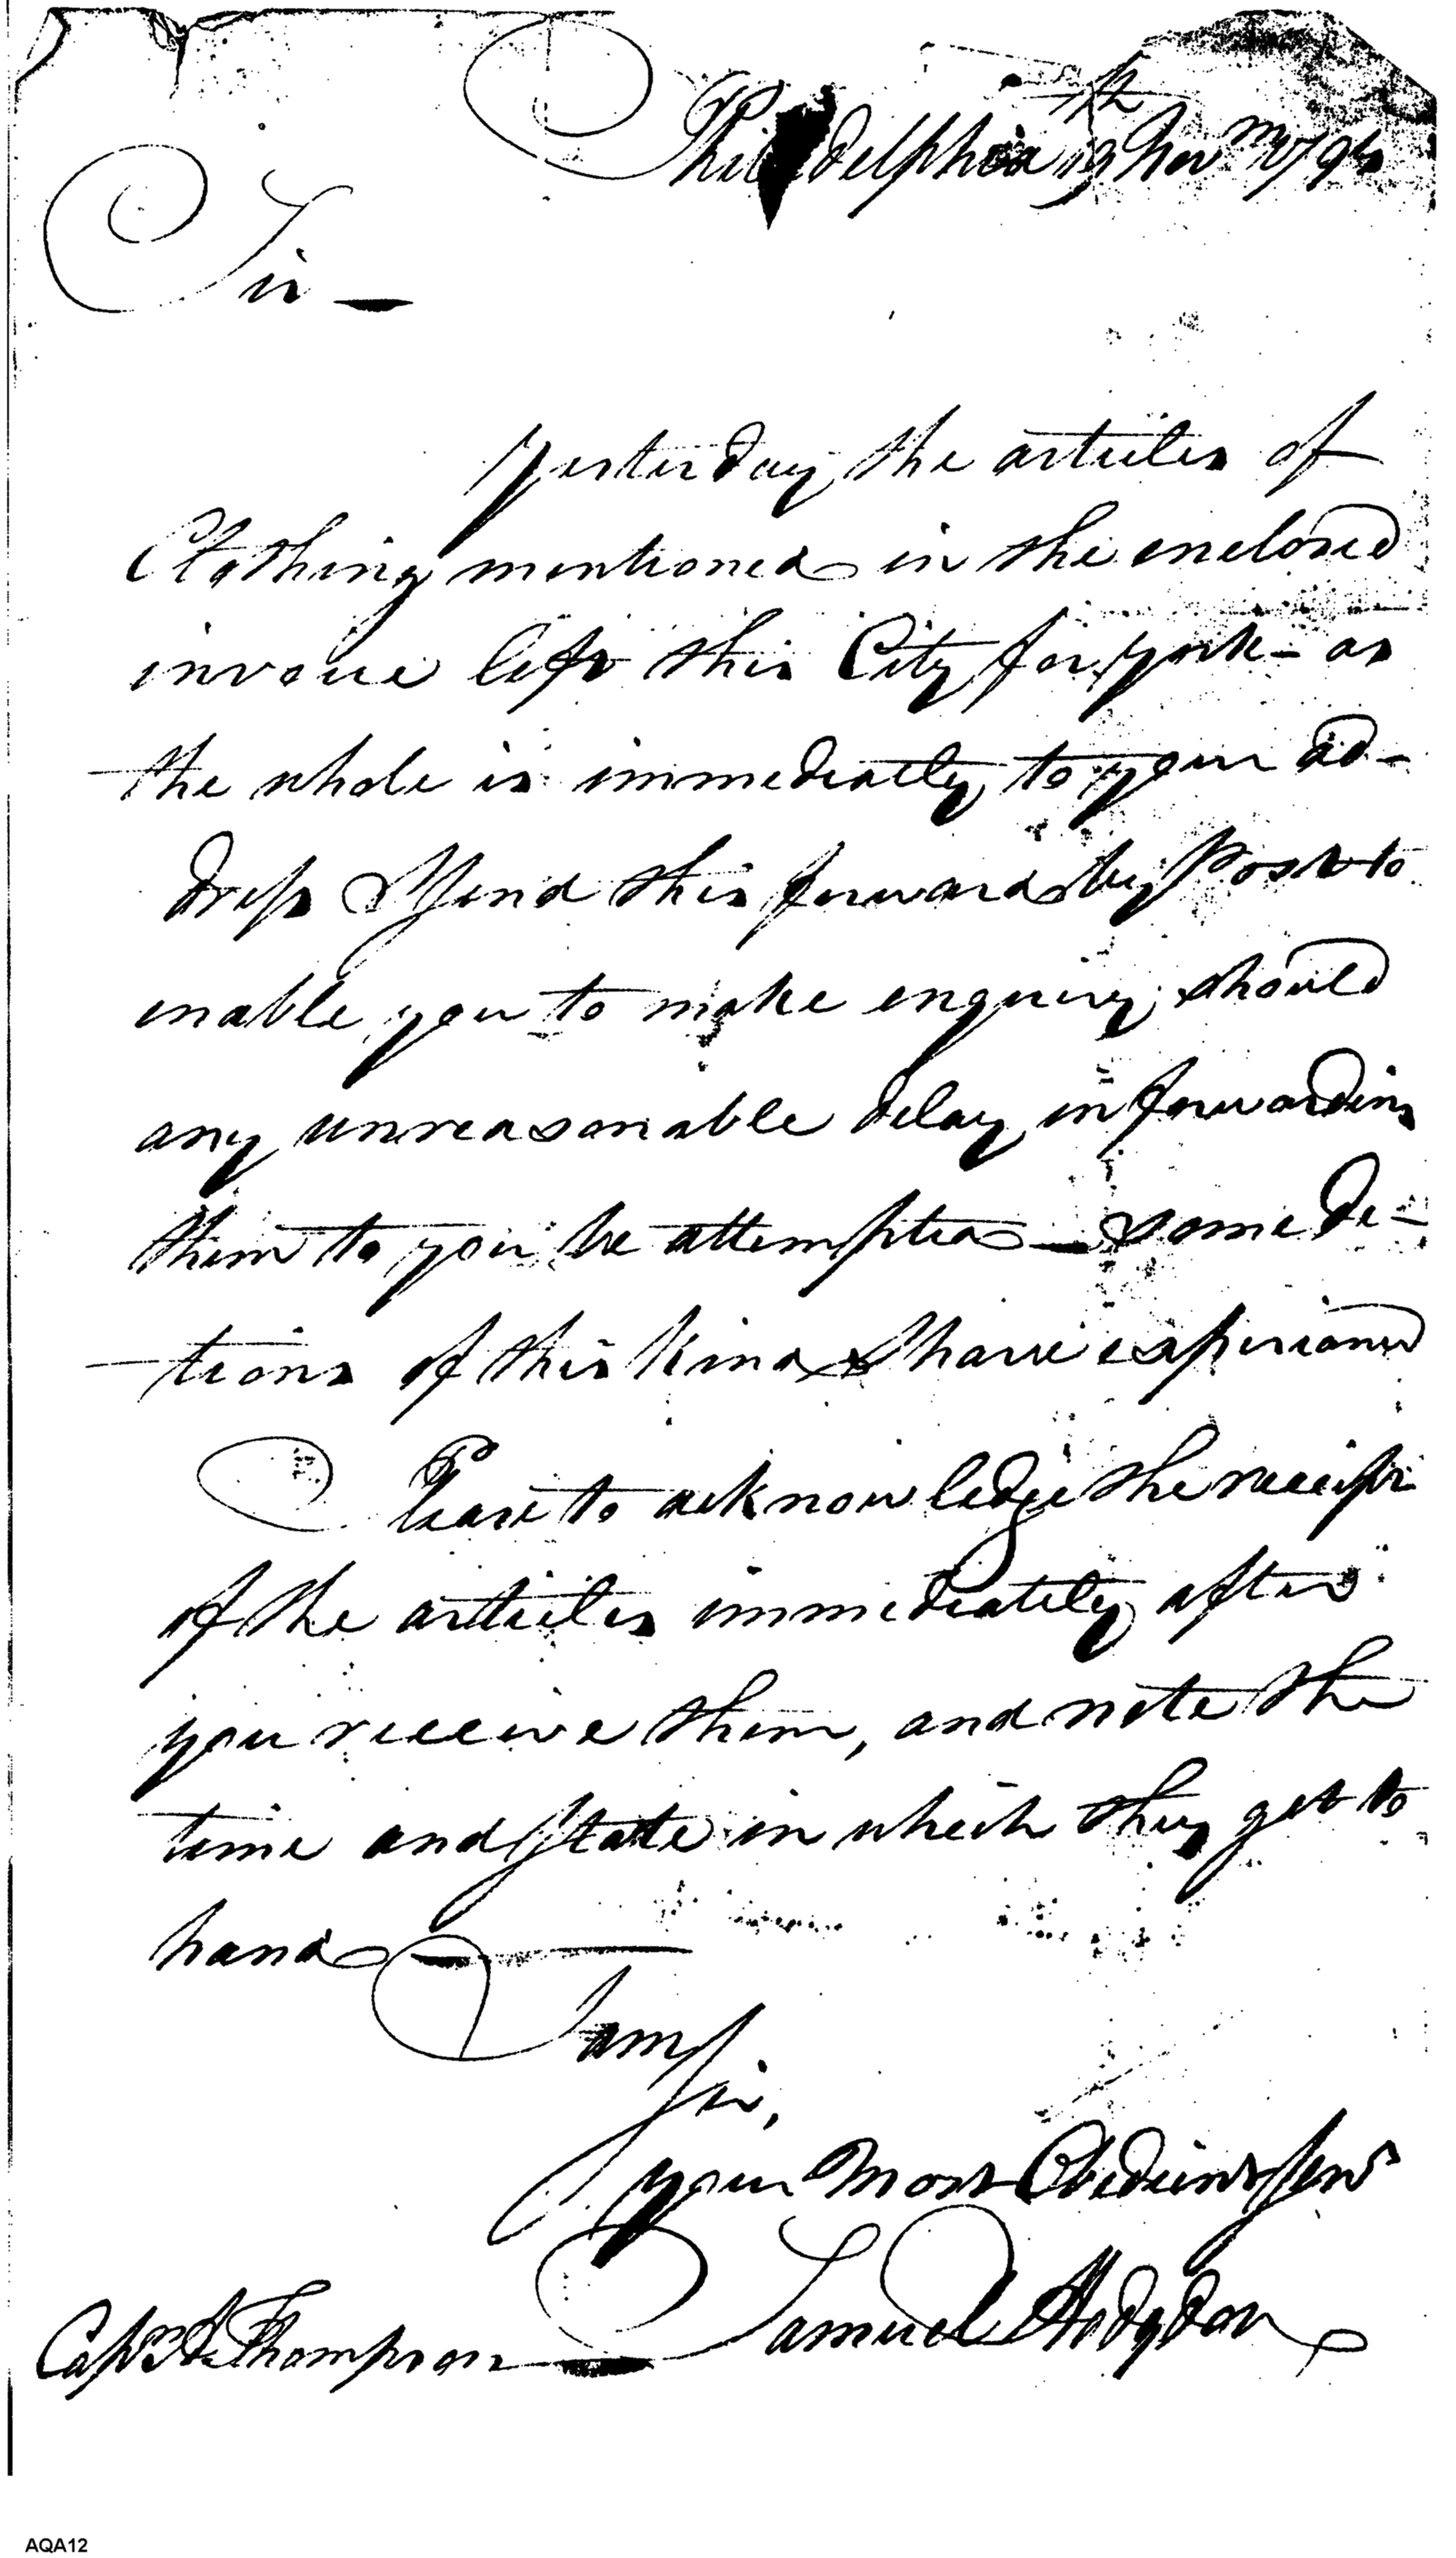 Philadelphia 19th Novm 1794
Sir —
Yesterday the articles of
Clothing mentioned in the enclosed
invoice left this City for york – as
the whole is immediately to your ad-
dress I send this forward by Post to
enable you to make enquiry should
any unreasonable delay in forwarding
them to you be attempted — some de-
tions of this kind I have experienced
Please to acknowledge the receipt
of the articles immediately after
you receive them, and note the
time and State in which they get to
hand —
I am
Sir,
your Most Obedient Serv
Samuel Hodgdon
Capt Thompson
AQA12